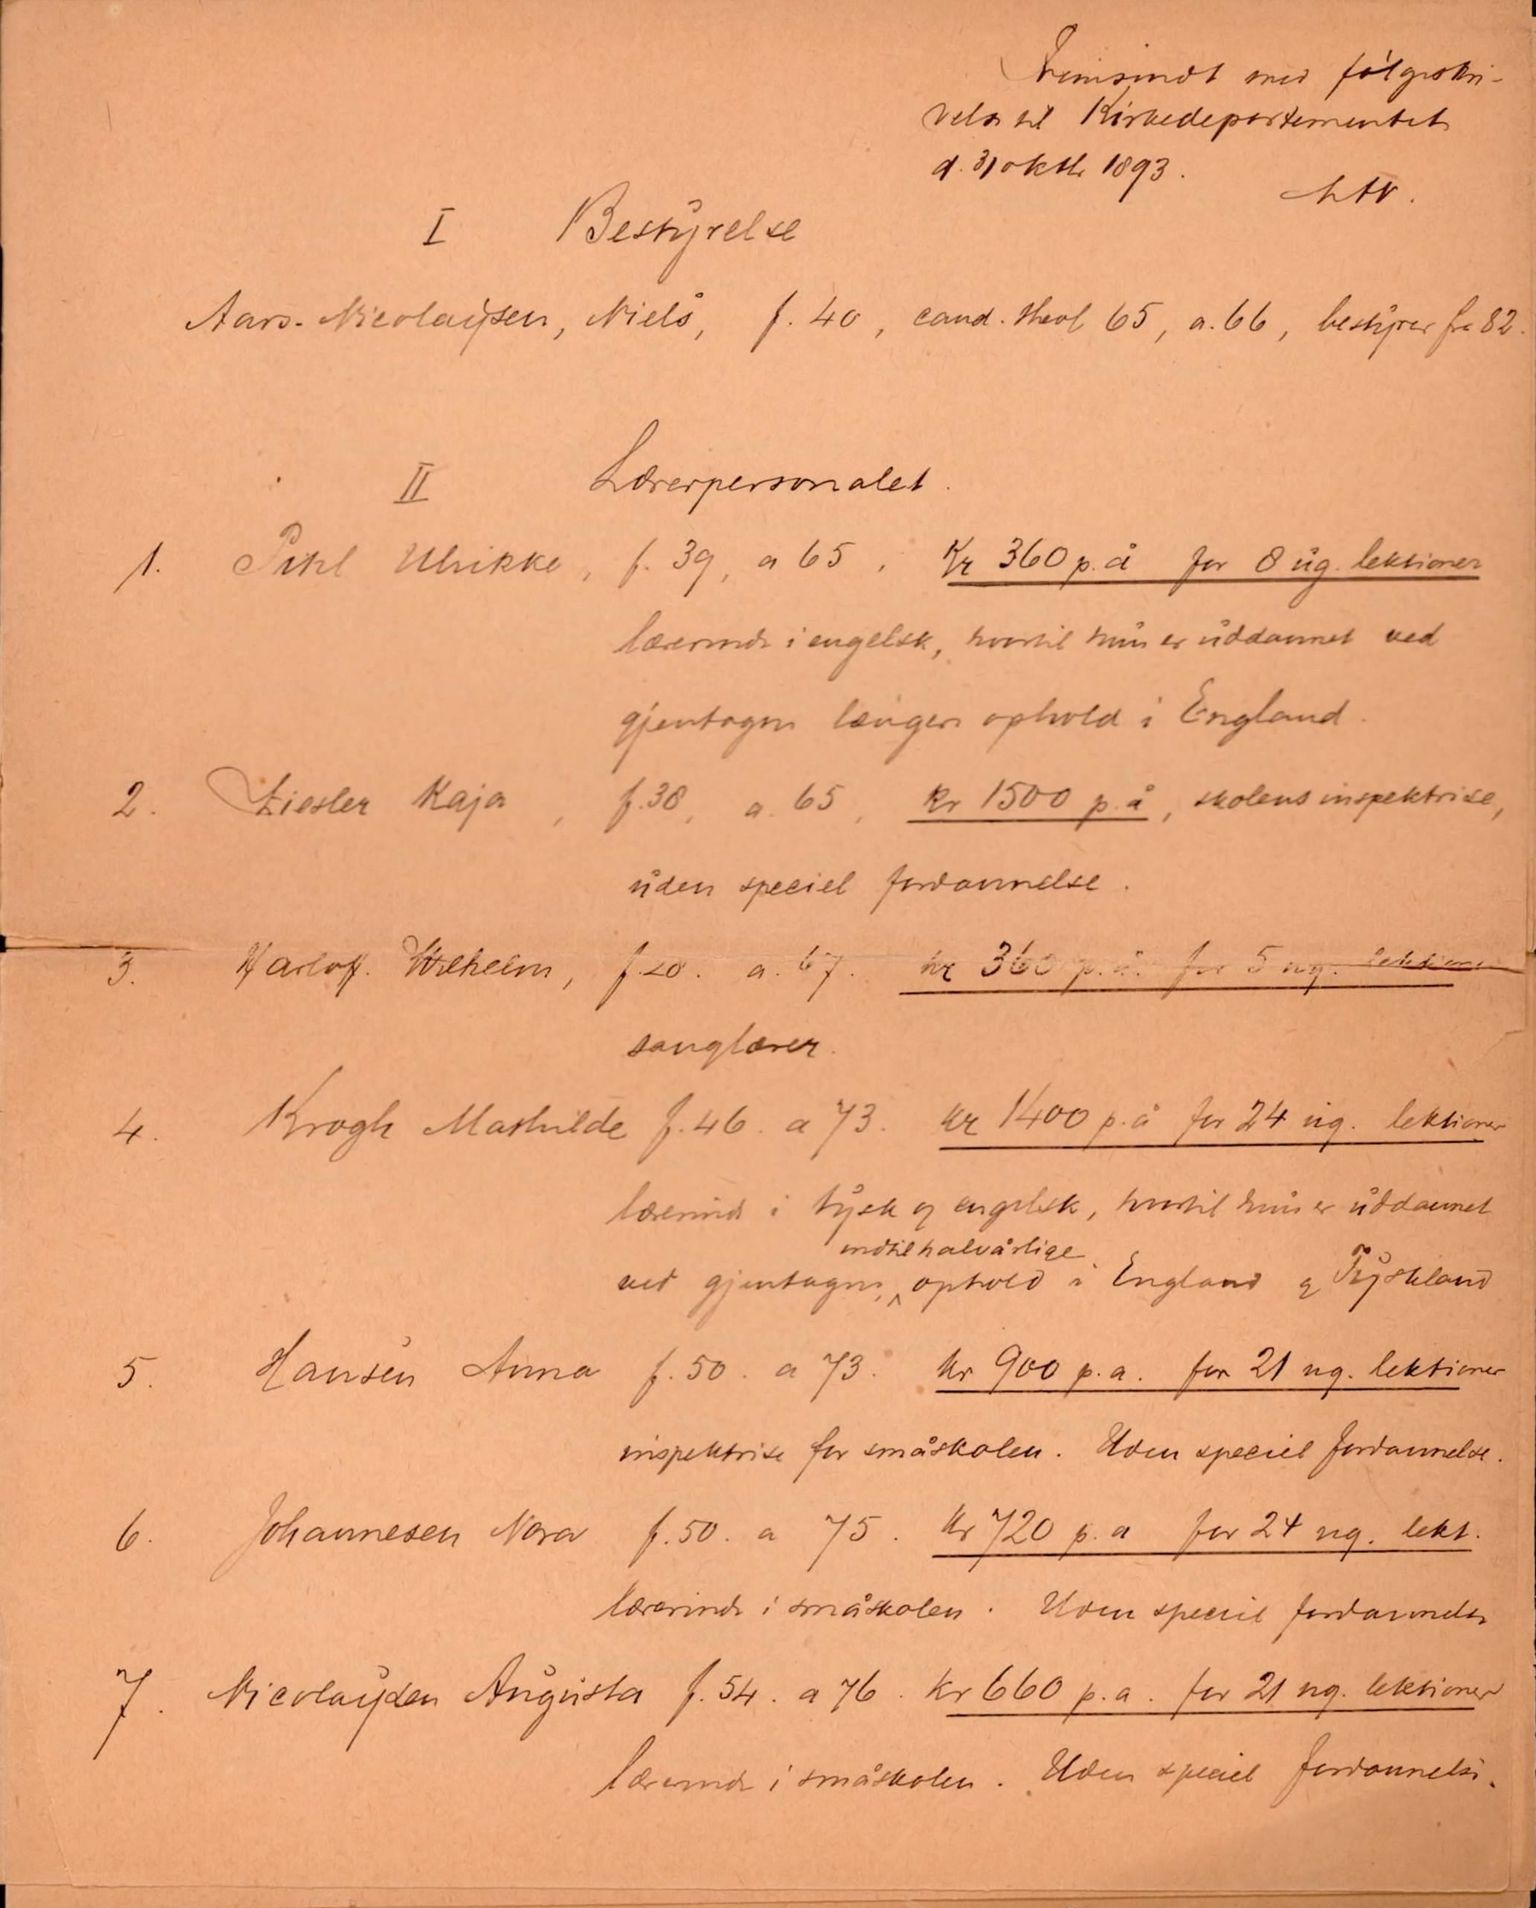 Fremsendt med følgeskri-
velse til Kirkedepartementet
d. 31 oktb 1893.
I Bestyrelse
Aars-Nicolaysen, Niels, f. 40, cand. theol 65, a. 66, bestyrer fra 82.
II Lærerpersonalet.
1. Pihl Ulrikke, f. 39, a 65. Kr 360 p. å for 8 ug. lektioner
lærerinde i engelsk, hvortil hun er uddannet ved
gjentagne længere ophold i England.
2. Ziesler Kaja, f. 38, a. 65, kr 1500 p. å, skolens inspektrise,
uden speciel fordannelse.
3. Harloff. Wilhelm, f. 20. a. 67. kr 360 p. å. for 5 ug. lektioner
sanglærer.
4. Krogh Mathilde f. 46. a 73. kr 1400 p. å for 24 ug. lektioner
lærerinde i tysk og engelsk, hvortil hun er uddannet
indtil halvårlige
ved gjentagne, ophold i England og Tyskland
5. Hansen Anna f. 50. a 73. kr 900 p. a. for 21 ug. lektioner
inspektrise for småskolen. Uden speciel fordannelse.
6. Johannesen Nora f. 50. a 75. kr 720 p. a for 24 ug. lekt.
lærerinde i småskolen. Uden speciel fordannelse
7. Nicolaysen Augusta f. 54. a 76. kr 660 p. a. for 21 ug. lektioner
lærerinde i småskolen. Uden speciel fordannelse.